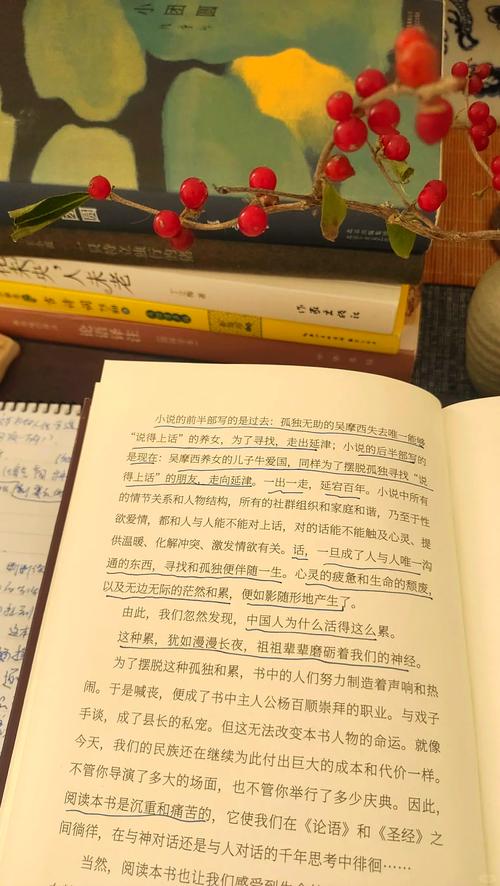 小团圆
圆
人未老
作家出版社
论语译注
小说的前半部写的是过去：孤独无助的吴摩西失去唯一能够
“说得上话”的养女，为了寻找，走出延津；小说的后半部写的
是现在：吴摩西养女的儿子牛爱国，同样为了摆脱孤独寻找“说
得上话”的朋友，走向延津。一出一走，延宕百年。小说中所有
的情节关系和人物结构，所有的社群组织和家庭和谐，乃至于性
欲爱情，都和人与人能不能对上话，对的话能不能触及心灵、提
供温暖、化解冲突、激发情欲有关。话，一旦成了人与人唯一沟
通的东西，寻找和孤独便伴随一生。心灵的疲惫和生命的颓废，
以及无边无际的茫然和累，便如影随形地产生了。
由此，我们忽然发现，中国人为什么活得这么累。
这种累，犹如漫漫长夜，祖祖辈辈磨砺着我们的神经。
为了摆脱这种孤独和累，书中的人们努力制造着声响和热
闹。于是喊丧，便成了书中主人公杨百顺崇拜的职业。与戏子
手谈，成了县长的私宠。但这无法改变本书人物的命运。就像
今天，我们的民族还在继续为此付出巨大的成本和代价一样。
不管你导演了多大的场面，也不管你举行了多少庆典。因此，
阅读本书是沉重和痛苦的，它使我们在《论语》和《圣经》之
间徜徉，在与神对话还是与人对话的千年思考中徘徊……
当然，阅读本书也让我们感受到生命